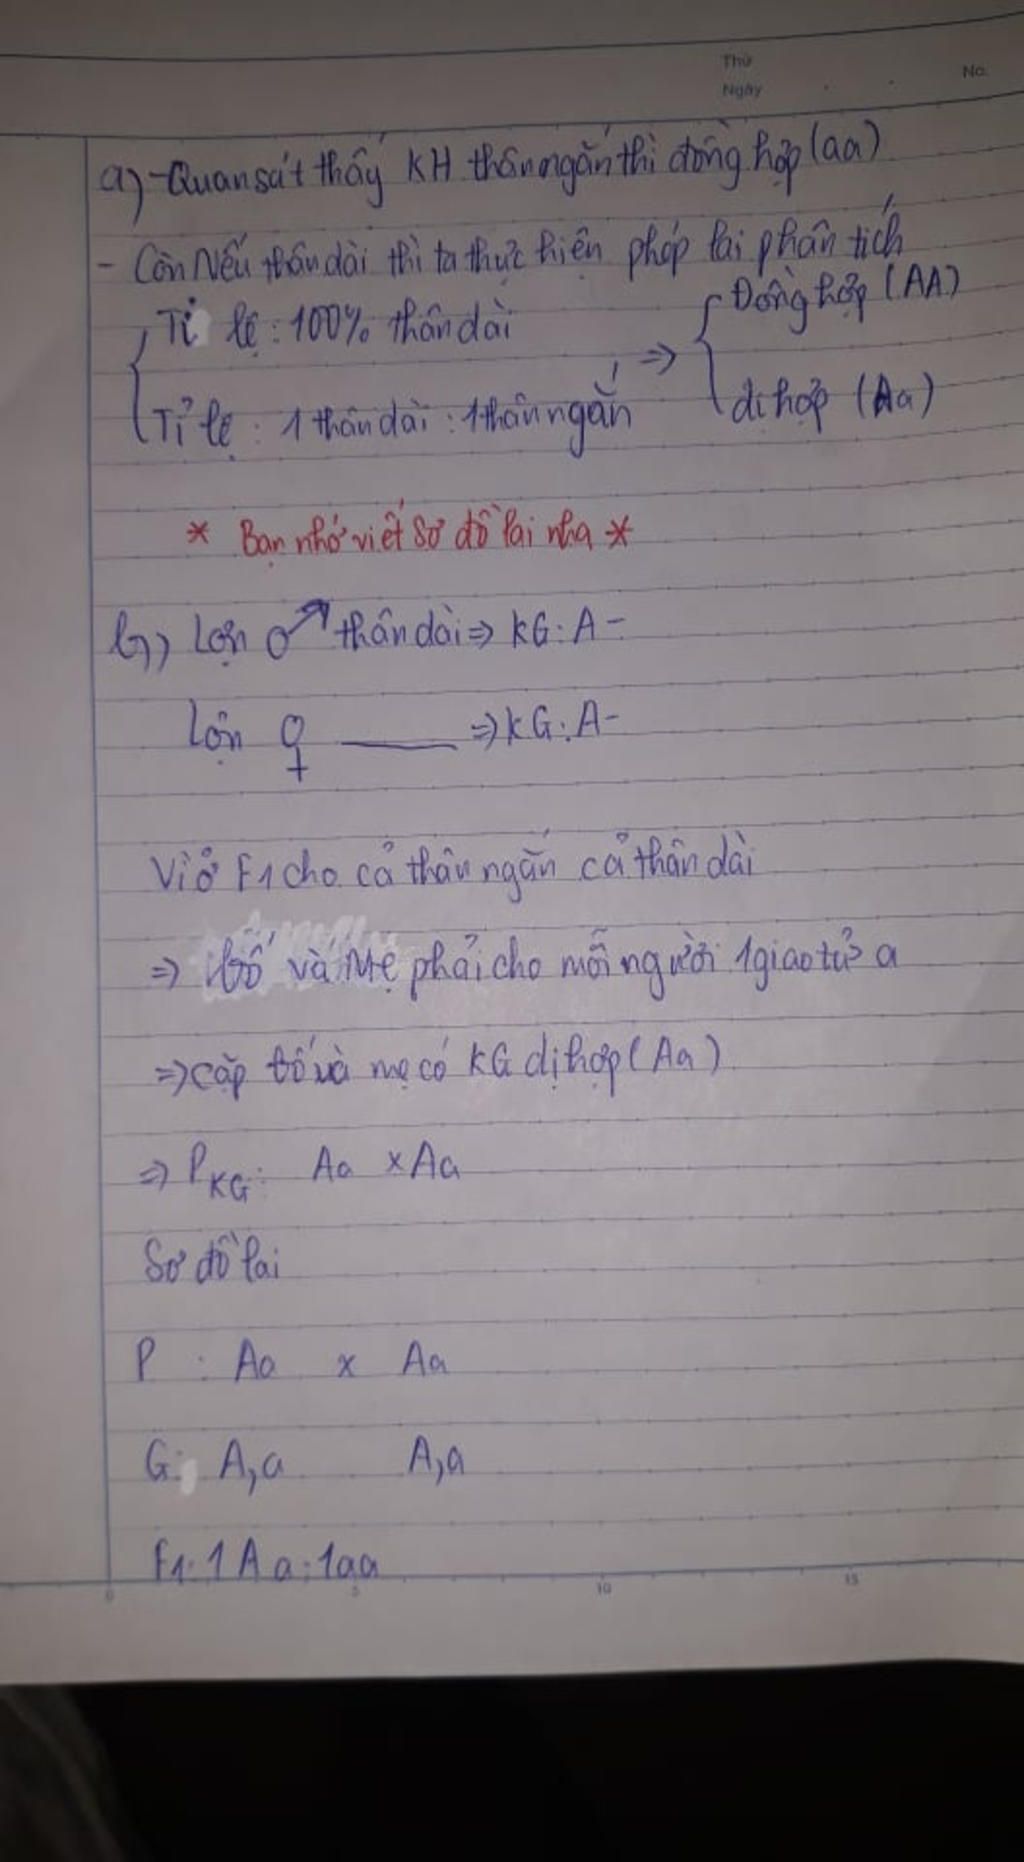 Thứ
Ngày
No.
a) - Quan sát thấy KH thân ngắn thì đồng hợp (aa)
- Còn Nếu thân dài thì ta thực hiện phép lai phân tích
Tỉ lệ : 100% thân dài
Tỉ lệ : 1 thân dài : 1 thân ngắn
⇒ Đồng hợp (AA)
dị hợp (Aa)
* Bạn nhớ viết sơ đồ lai nha *
b) Lợn ♂ thân dài ⇒ KG : A-
Lợn ♀ —— ⇒ KG : A-
Vì ở F1 cho cả thân ngắn cả thân dài
⇒ Bố và Mẹ phải cho mỗi người 1 giao tử a
⇒ cặp bố và mẹ có KG dị hợp (Aa)
⇒ PKG : Aa x Aa
Sơ đồ lai
P : Aa x Aa
G : A,a A,a
F1 : 1 Aa : 1aa
5
10
15